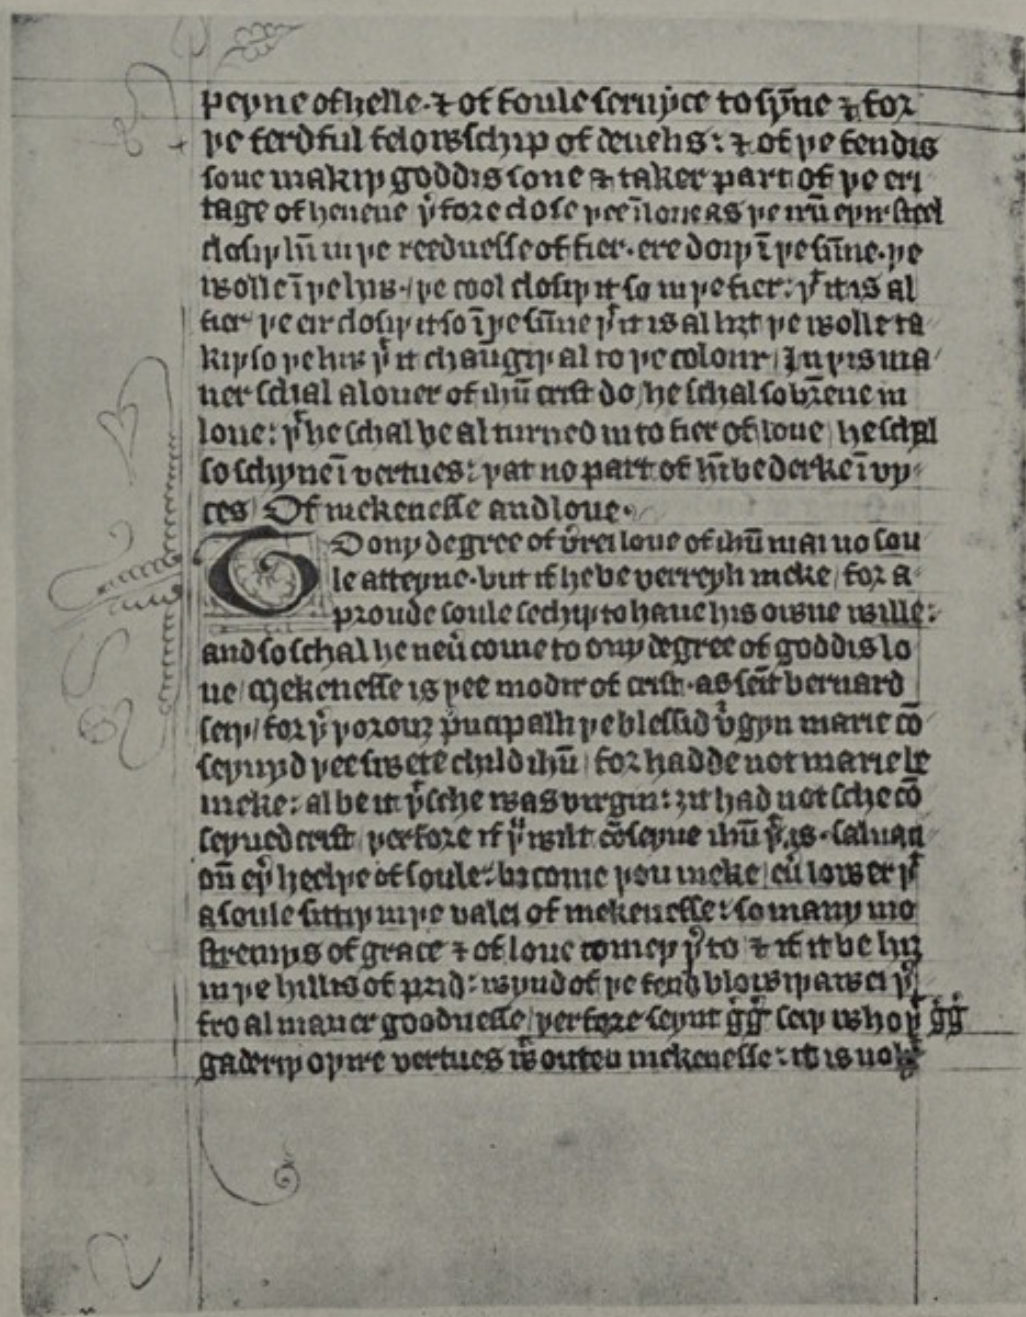 peyne of helle · ⁊ of foule seruyce to sy̅ne ⁊ for
þe ferdful felowschip of deuelis : ⁊ of þe fendis
sone makiþ goddis sone ⁊ taker part of þe eri
tage of heuene þͬfore close þee i̅ loue as þe
closiþ in þe reednesse of fier · ere doiþ i̅ þe su̅ne · þe
wolle i̅ þe hiw · þe cool closiþ it so in þe fier : þͭ it is al
fier þe eir closiþ it so i̅ þe su̅ne þͭ it is al liȝt þe wolle ta
kiþ so þe hiw þͭ it chau̅giþ al to þe colour / In þis ma
ner schal a louer of ihu̅ crist do / he schal so bre̅ne in
loue : þͭ he schal be al turned in to fier of loue / he schal
so schyne i̅ vertues : þat no part of hi̅ be derke i̅ vy
ces / Of mekenesse and loue ·
To ony degree of v̾rei loue of ihu̅ mai no sou
le atteyne · but if he be verreyli meke / for a
proude soule sechiþ to haue his owne wille :
and so schal he neu̾ come to ony degree of goddis lo
ue / Mekenesse is þee modir of crist · as sei̅t bernard
seiþ / for þͭ þorouȝ p̾ncipalli þe blessid v̾gyn marie co̅
seyuyd þee swete child ihu̅ / for hadde not marie be
meke : al be it þͭ sche was virgin : ȝit had not sche co̅
seyued crist / þerfore if þͧ wilt co̅seyue ihu̅ þͭ is · saluaci
ou̅ eþ̾ heelþe of soule : bicome þou meke / eu̾ lower þͭ
a soule sittiþ in þe valei of mekenesse : so many mo
stremys of grace ⁊ of loue comeþ þͬto ⁊ if it be hiȝ
in þe hillis of prid : wynd of þe fend blowiþ awei þͭ
fro al maner goodnesse / þerfore seynt g̾g̾ seiþ who þͭ g̾g̾
gaderiþ oþire vertues wͭouten mekenesse : it is